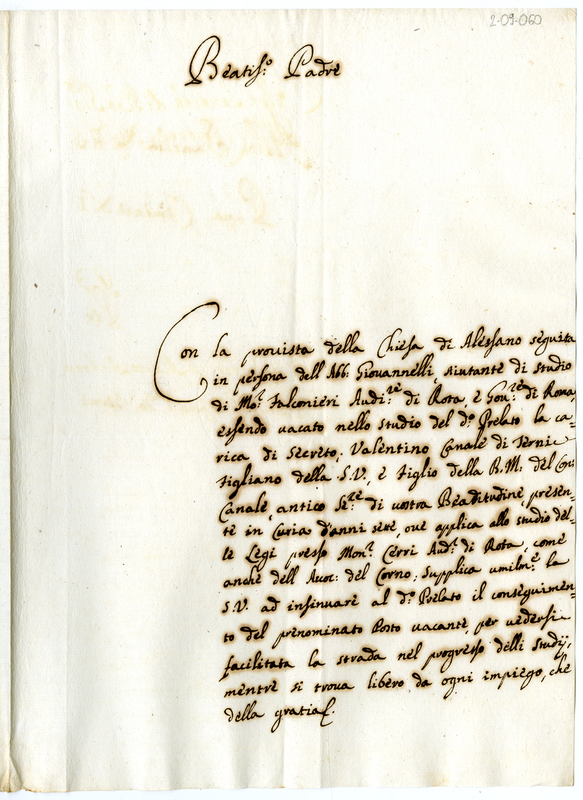 2-09-060
Beatis.º Padre
Con la provista della Chiesa di Alessano seguita
in persona dell'Abb: Giovannelli, aiutante di studio
di Mo.r Falconieri Audi.re di Rota, e Gov.re di Roma,
essendo vacato nello studio del d.º Prelato la ca-
rica di Secreto; Valentino Canale di Terni
figliano della S.V., e figlio della B.M: del Con:
Canale, antico Se.re di vostra Beatitudine, presen-
te in Curia d'anni sette, ove applica allo studio del-
le Legi presso Mon.r Cerri Aud.r di Rota, come
anche dell'Avoc: del Corno; Supplica umilm.e la
S.V. ad insinuare al d.º Prelato il conseguimen-
to del prenominato Posto vacante, per vedersi
facilitata la strada nel progresso delli studij,
mentre si trova libero da ogni impiego, che
della gratia